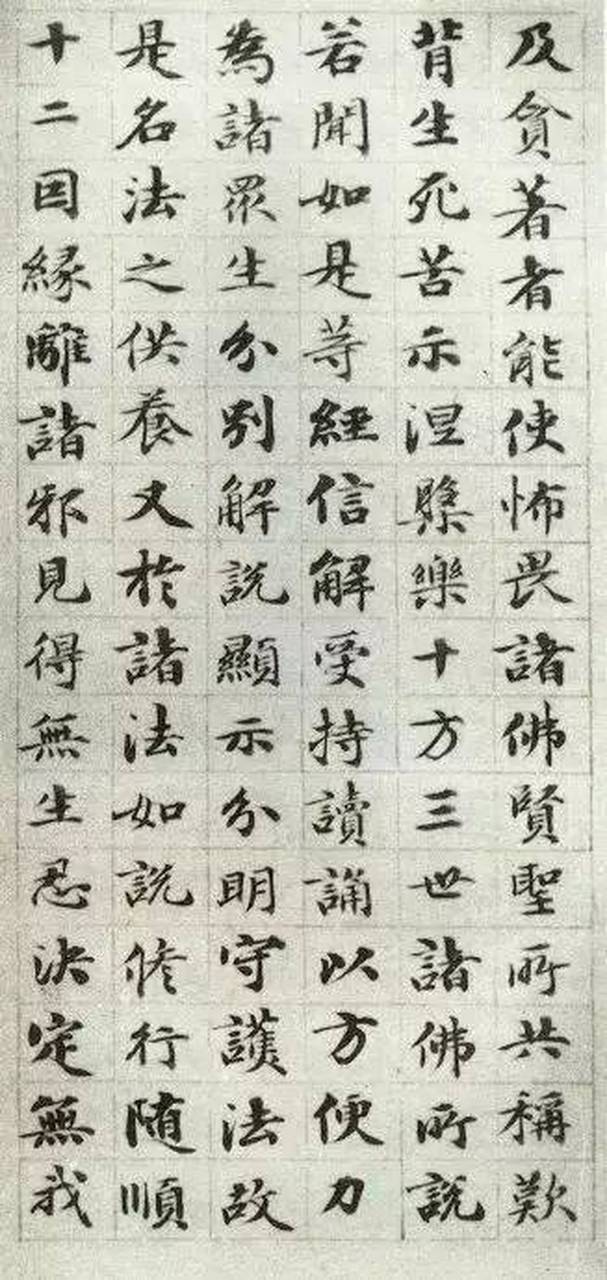 及貪著者能使怖畏諸佛賢聖所共稱歎
背生死苦示涅槃樂十方三世諸佛所說
若聞如是等經信解受持讀誦以方便力
為諸眾生分別解說顯示分明守護法故
是名法之供養又於諸法如說修行随順
十二因緣離諸邪見得無生忍決定無我